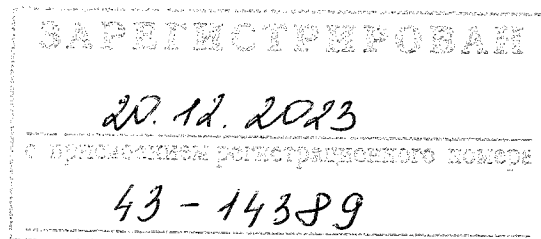 ЗАРЕГИСТРИРОВАН
20.12.2023
с присвоением регистрационного номера
43 - 14389